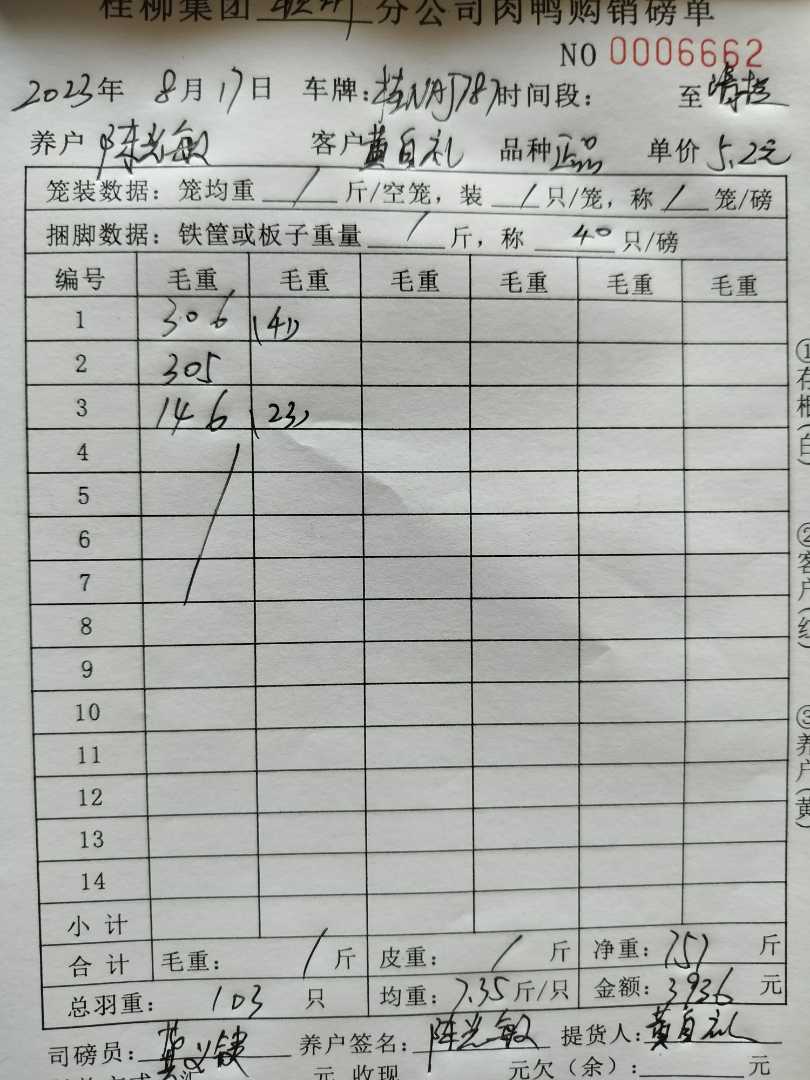 桂柳集团 分公司肉鸭购销磅单
NO 0006662
2023年 8月17日 车牌:桂NAJ787 时间段: 至
养户 陈光敏 客户 黄自礼 品种 正品 单价 5.2元
笼装数据: 笼均重 / 斤/空笼, 装 / 只/笼, 称 / 笼/磅
捆脚数据: 铁筐或板子重量 / 斤, 称 40 只/磅
编号 毛重 毛重 毛重 毛重 毛重 毛重
1 306 (41)
2 305
3 146 (23)
4
5
6
7
8
9
10
11
12
13
14
小计
合计 毛重: / 斤 皮重: / 斤 净重: 757 斤
总羽重: 103 只 均重: 7.35 斤/只 金额: 3936 元
司磅员: 养户签名: 陈光敏 提货人: 黄自礼
元 收现 元欠(余): 元
①存根(白)
②客户(红)
③养户(黄)